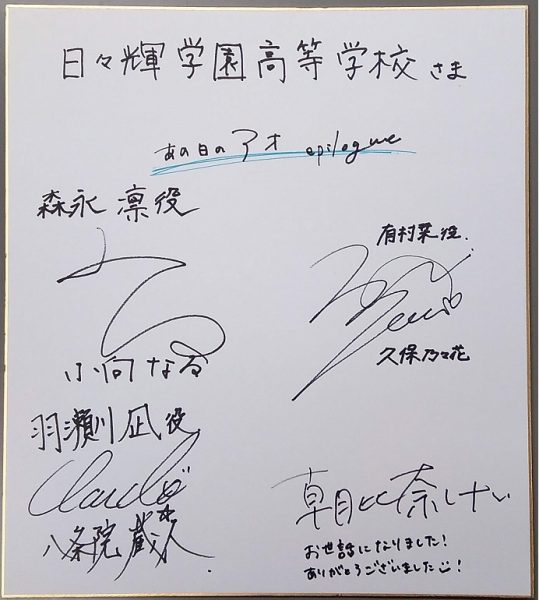 日々輝学園高等学校さま
あの日のアオ epilogue
森永 凛役
小向なる
有村菜役.
久保乃々花
羽瀬川凪役
八条院蔵人
朝比奈しけい
お世話になりました!
ありがとうございました!